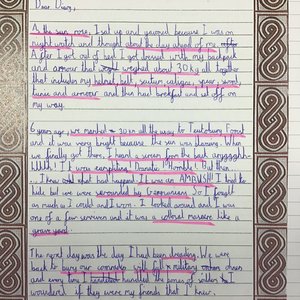 Dear, Diary,
As the sun rose, I sat up and yawned because I was on
night watch and thought about the day ahead of me.
After I got out of bed I got dressed with my backpack
and armour that weighed about 30kg all together
that includes my helmet, belt, scutum, caligae, spear, sword,
tunic and armour and then had breakfast and set off on
my way.
6 years ago, we marched 30 km all the way to Teutoburg Forest
and it was very bright because the sun was blazing. When
we finally got there, I heard a scream from the back
It was complete Then
I knew what had happened, it was an AMBUSH! I had to
hide but we were surrounded by Germanians. So I fought
as much as I could and I won. I looked around and I was
one of a few survivors and it was a massacre like a
grave yard.
The next day was the day I had been dreading. We were
back to bury our comrades with full military honors
and every time I the bones of soldiers I
wondered if they were my friends that I knew.